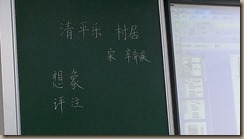 清平乐 村居
宋 辛弃疾
想象
评注